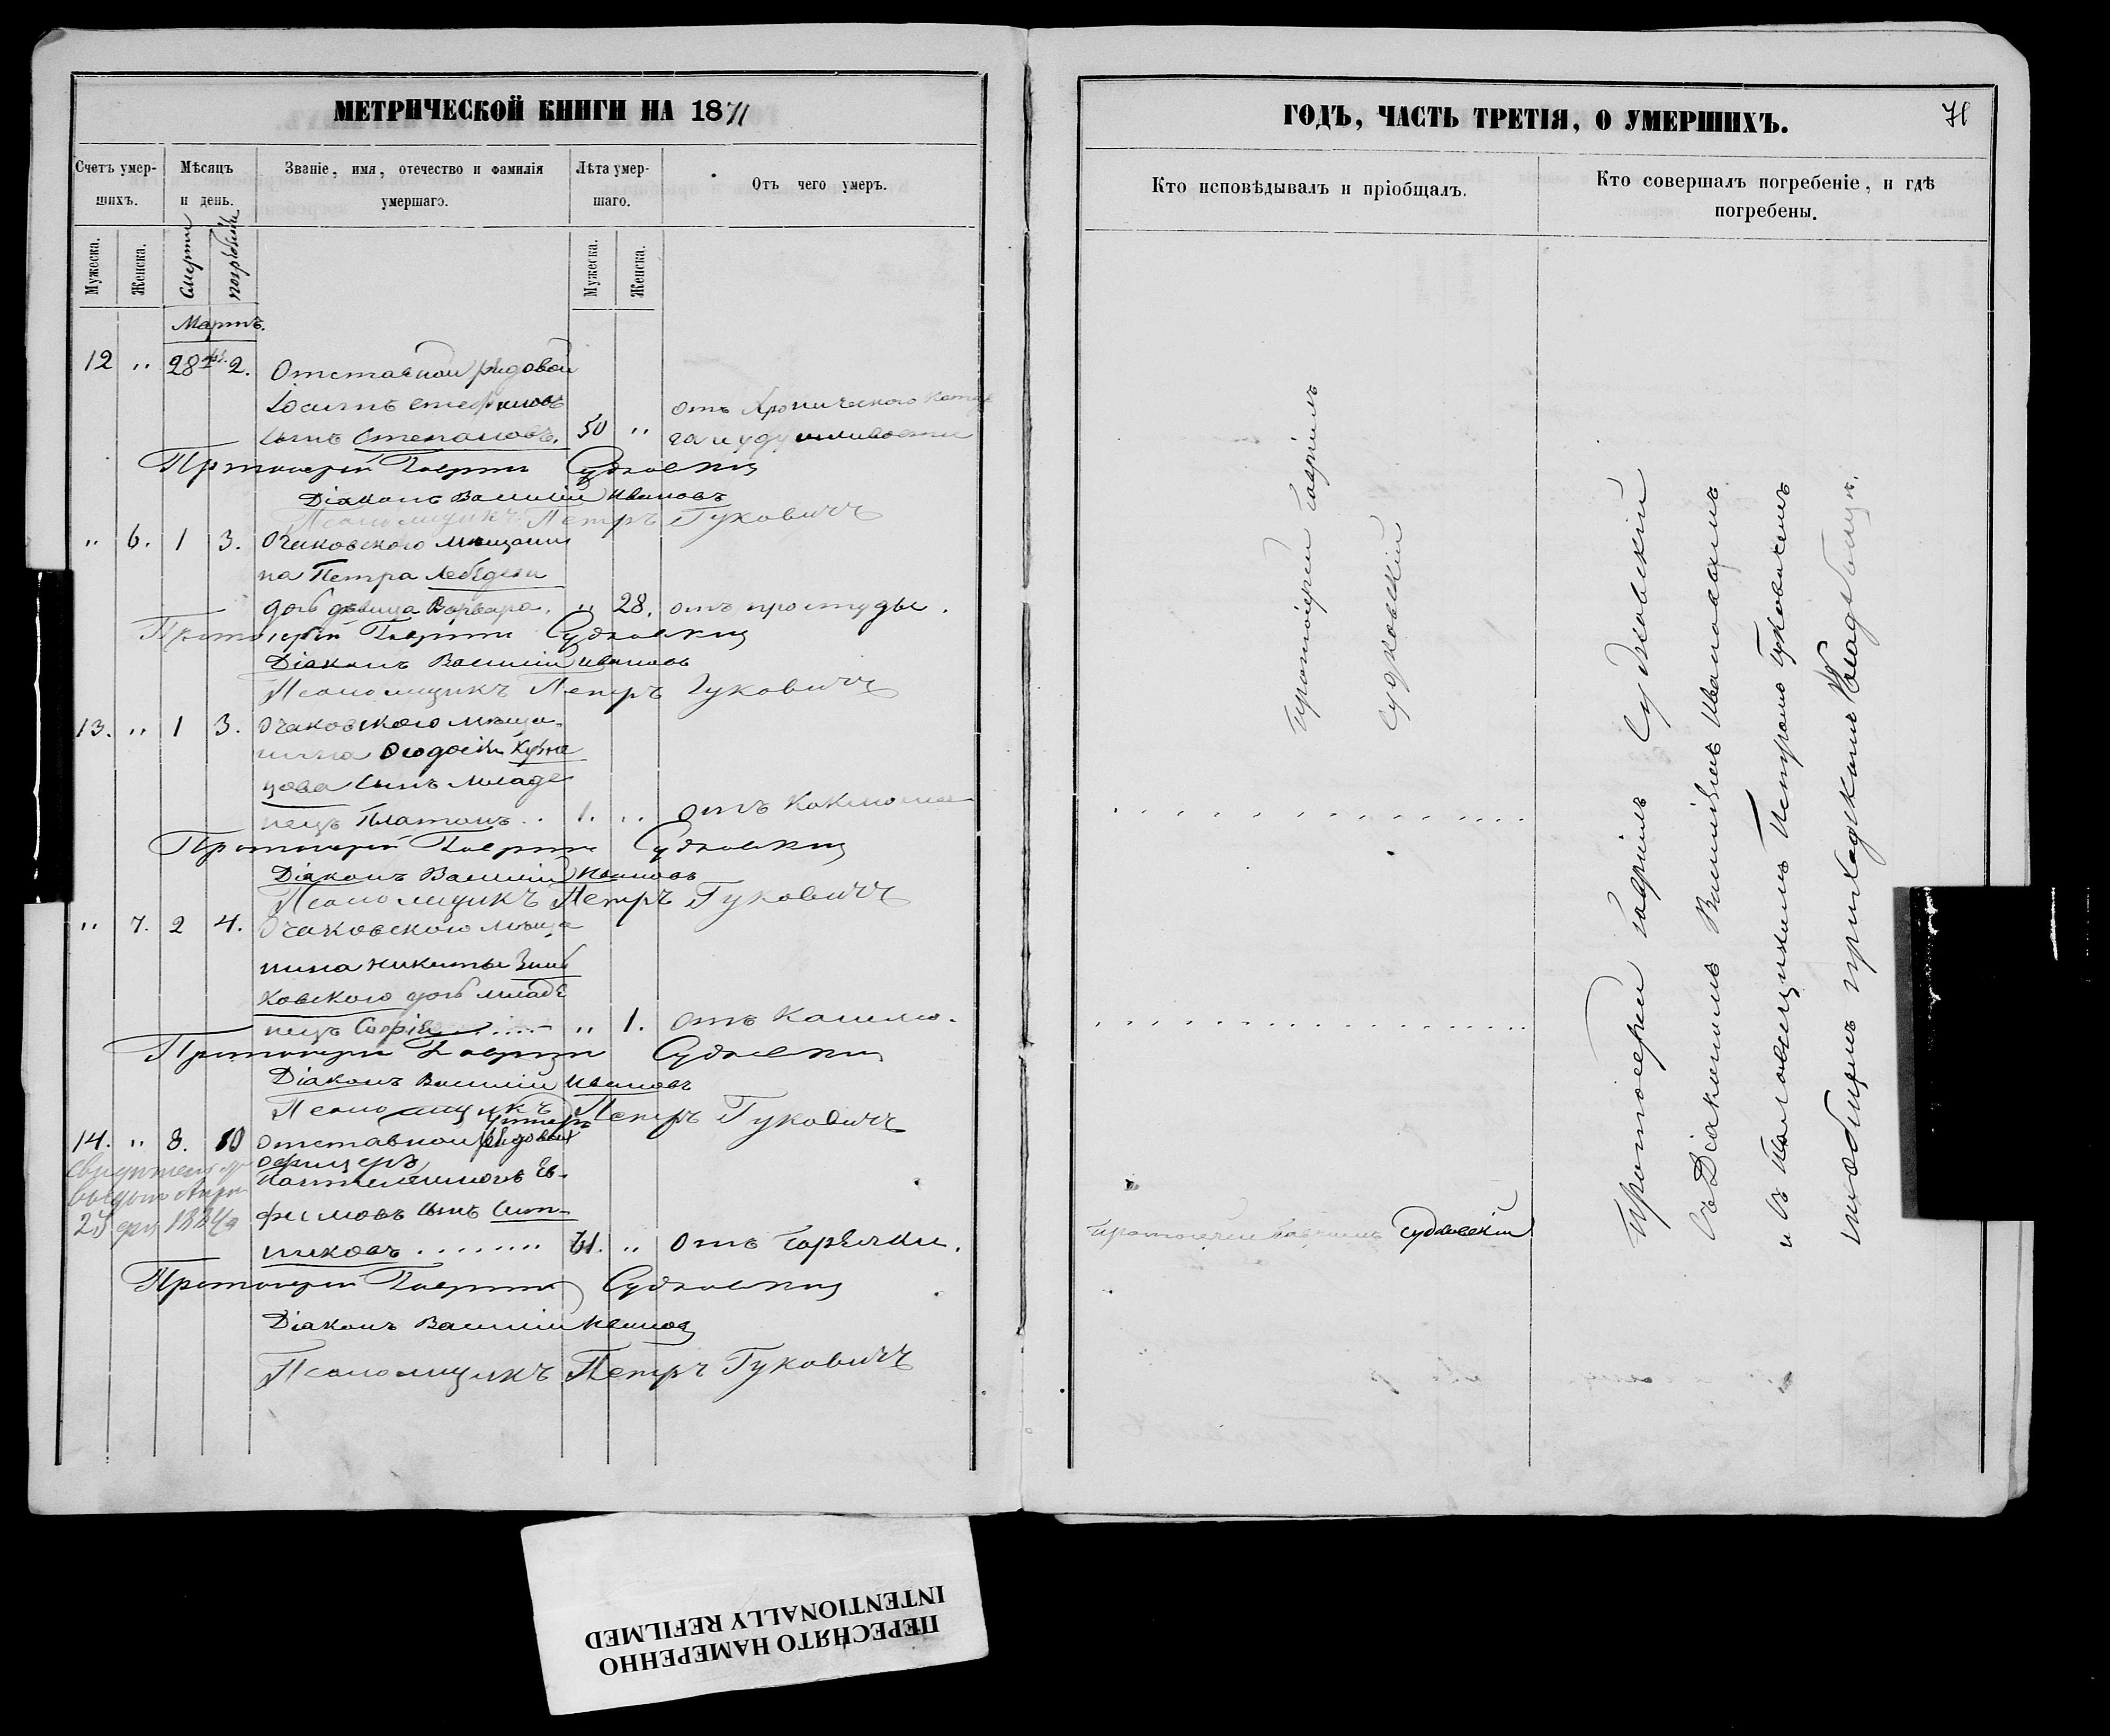 МЕТРИЧЕСКОЙ КНИГИ НА 1871
Счетъ умер-
шихъ.
Мѣсяцъ
и день.
Званіе, имя, отечество и фамилія
умершаго.
Лѣта умер-
шаго.
Отъ чего умеръ.
Мужеска.
Женска.
Смерти
погребенія
Мужеска.
Женска.
Мартъ.
12 " 28 2. Отставной рядовой
сынъ Степановъ. 50 "
отъ Хроническаго
Протоіерей Гавріилъ Судковскій
Діаконъ Василій Ивановъ
Псаломщикъ Петръ Гуковичъ
" 6. 1 3. Очаковскаго мѣщани
на Петра Лебедева
дочь дѣвица Варвара. " 28. отъ простуды.
Протоіерей Гавріилъ Судковскій
Діаконъ Василій Ивановъ
Псаломщикъ Петръ Гуковичъ
13. " 1 3. Очаковскаго мѣща-
нина Ѳеодосія Кузне
цова сынъ младе
нецъ Платонъ . . 1. . . отъ Коклюша
Протоіерей Гавріилъ Судковскій
Діаконъ Василій Ивановъ
Псаломщикъ Петръ Гуковичъ
" 7. 2 4. Очаковскаго мѣща
нина Никиты
ковскаго дочь младе
нецъ Софія " 1. отъ Кашлю.
Протоіерей Гавріилъ Судковскій
Діаконъ Василій Ивановъ
Псаломщикъ Петръ Гуковичъ
14. " 8. 10 Отставной рядовой
унтеръ
офицеръ
Пантелеимонъ Ев-
фимовъ сынъ
никовъ . . . . . . . . 61. " Отъ Горячки.
Протоіерей Гавріилъ Судковскій
Діаконъ Василій Ивановъ
Псаломщикъ Петръ Гуковичъ
ГОДЪ, ЧАСТЬ ТРЕТІЯ, О УМЕРШИХЪ.
71
Кто исповѣдывалъ и пріобщалъ.
Кто совершалъ погребеніе, и гдѣ
погребены.
Протоіерей Гавріилъ
Судковскій
Протоіерей Гавріилъ Судковскій
Протоіерей Гавріилъ Судковскій
съ Діакономъ Василіемъ Ивановымъ
и съ Псаломщикомъ Петромъ Гуковичемъ
на общемъ приходскомъ кладбищѣ.
ПЕРЕСНЯТО НАМЕРЕННО
INTENTIONALLY REFILMED